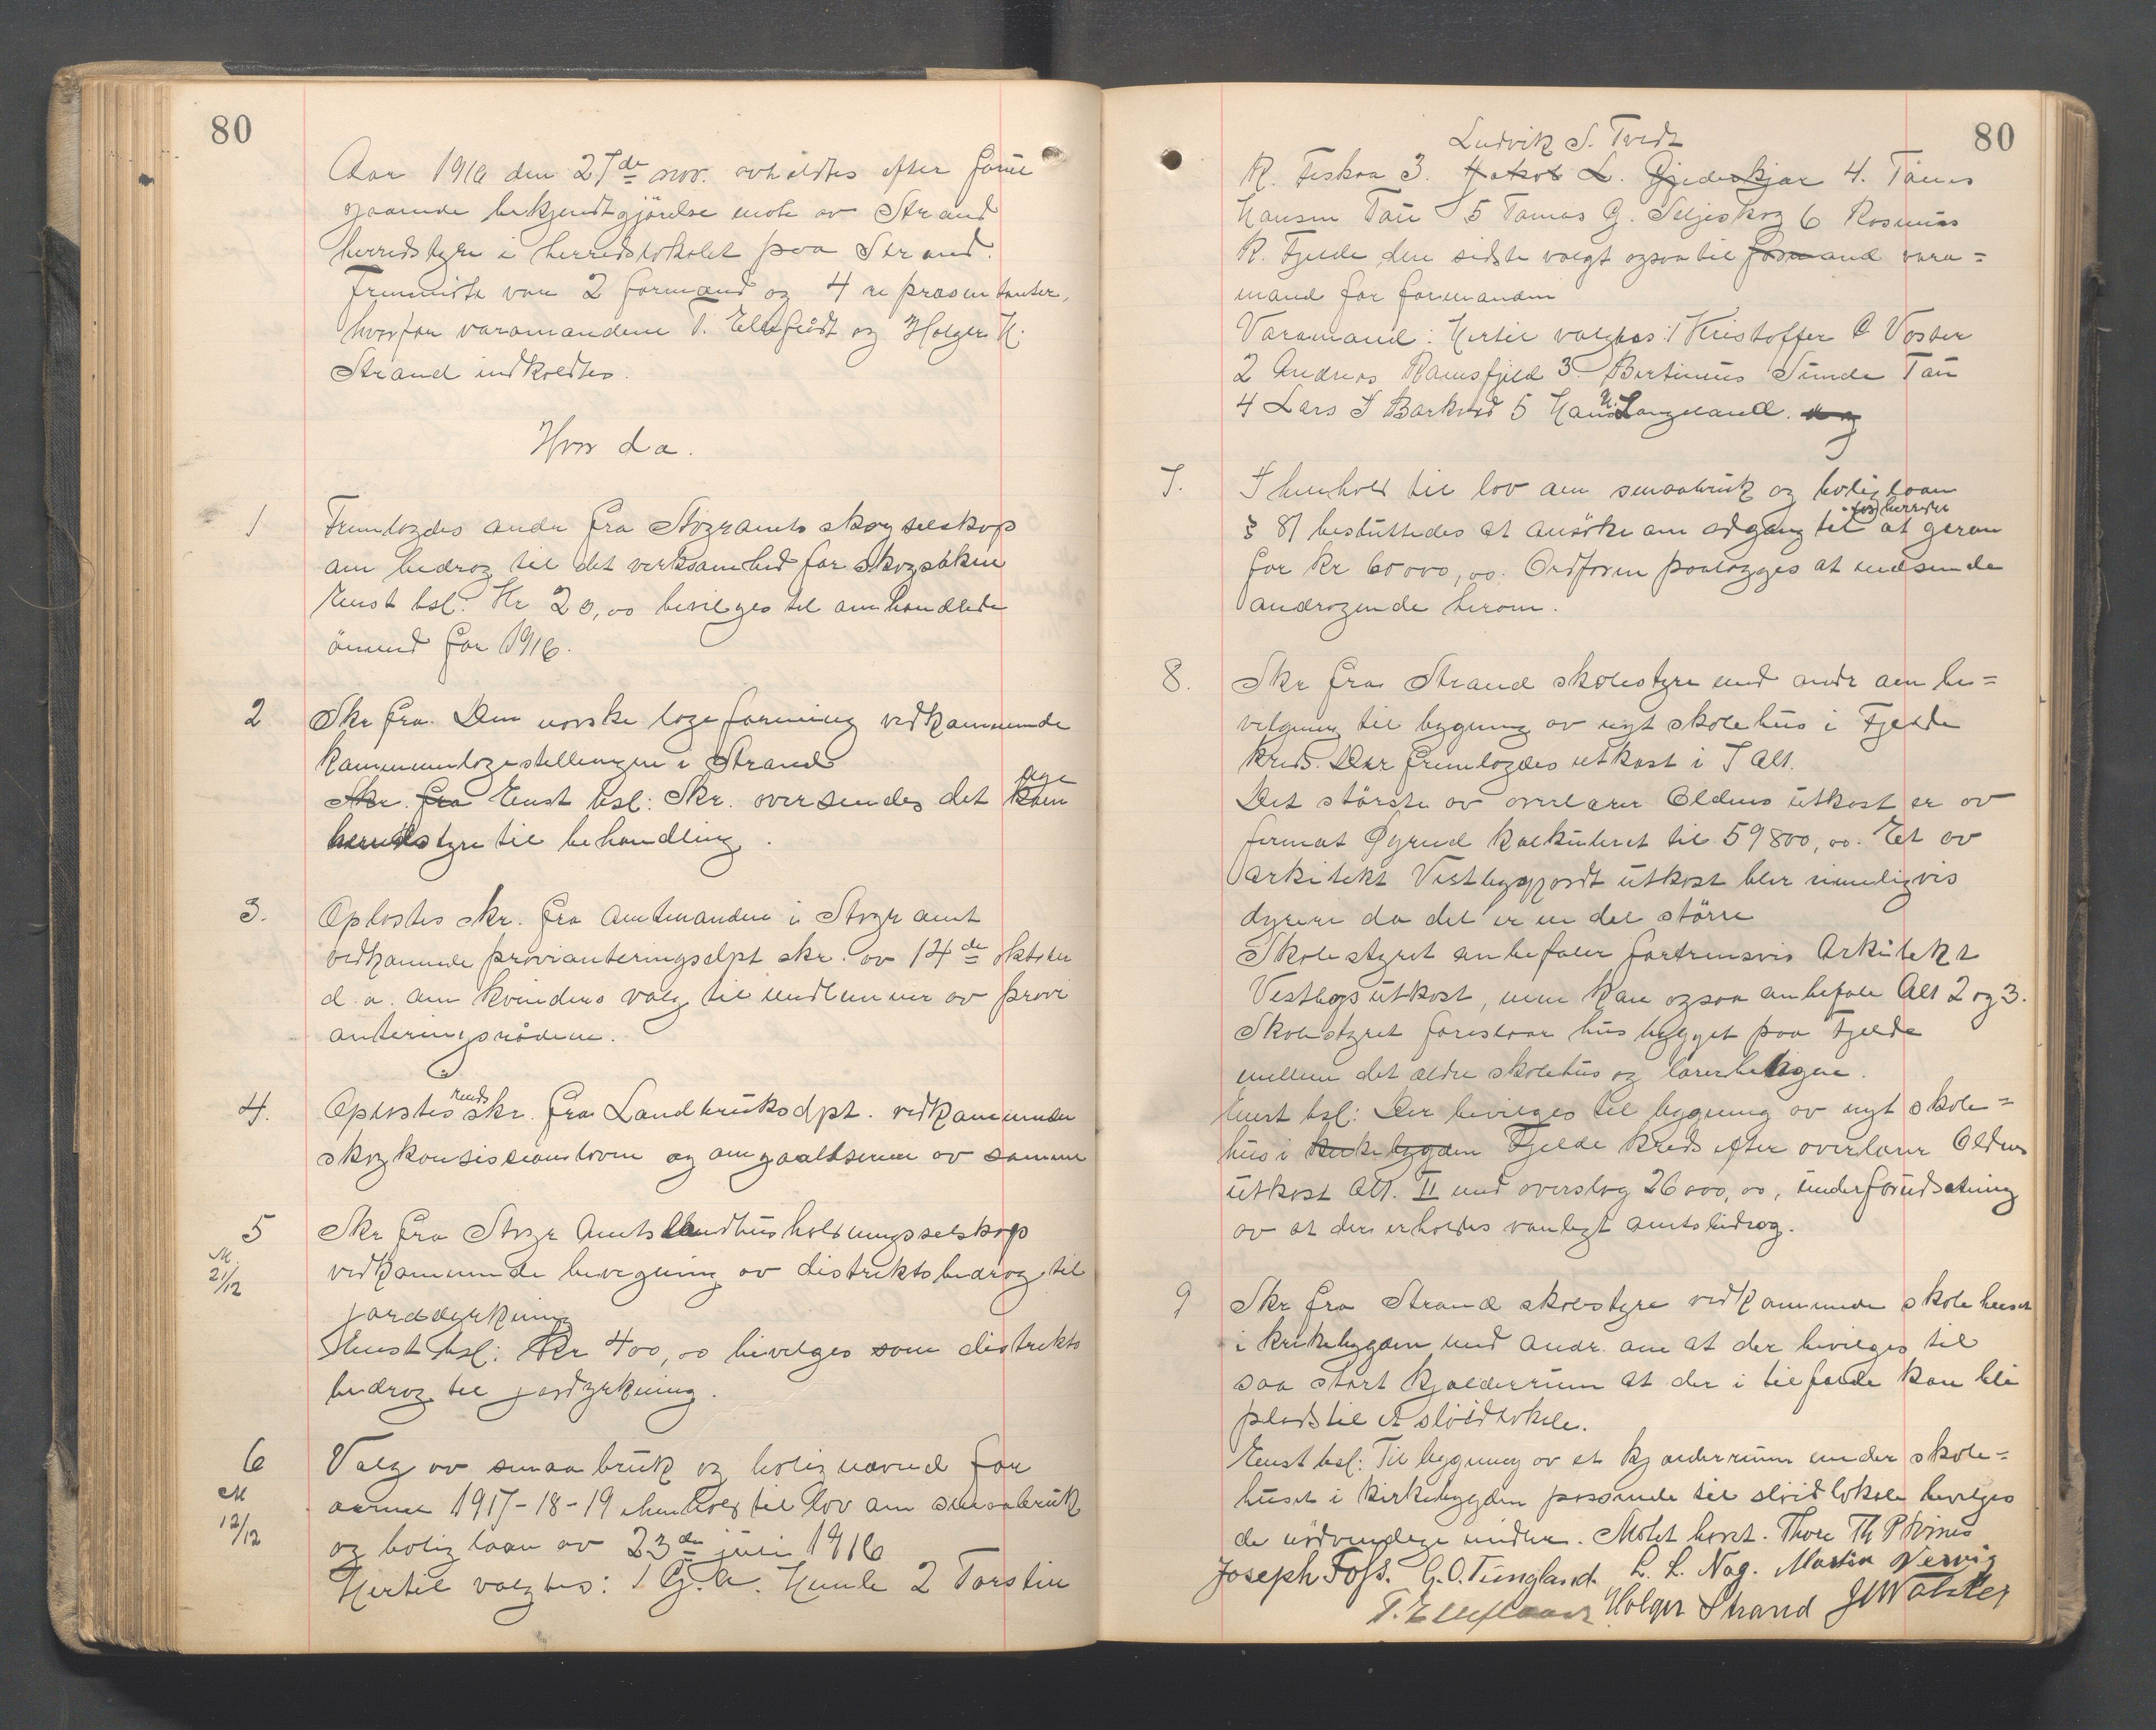 80
Aar 1916 den 27de nov. avholdtes efter forut
gaaende bekjendtgjörelse möte av Strand
herredstyre i herredslokalet paa Strand.
Fremmötte var 2 formænd og 4 repræsentanter,
hvorfor varamændene T. og Holger H.
Strand indkaldtes.
Hvor da.
1 Fremlagdes andr fra Stvgr amts skogselskap
om bedrag til det virksomhed for skogsaken
Enst bsl: Kr 20,00 bevilges til omhandlede
öiemed for 1916.
2 Skr fra Den norske lægeforening vedkommende
kommunelægestillingen i Strand
Skr. fra Enst bsl: Skr. oversendes det nye
kom
herredstyre til behandling.
3. Oplæstes skr. fra Amtmanden i Stvgr amt
vedkommende provianteringsdpt skr. av 14de oktober
d. a. om kvinders valg til medlemmer av provi
anteringsrådene.
4. Oplæstes runds skr. fra Landbruksdpt. vedkommende
skogkonsesionsloven og omgaaelsene av samme
5 Skr fra Stvgr Amts landhusholdningsselskap
M. 21/12 vedkommende bevilgning av distriktsbedrag til
jorddyrkning
Enst bsl: Kr 400,00 bevilges som distrikts
bedrag til jorddyrkning.
6 Valg av smaabruk og bolignævnd for
M 12/12 aarene 1917-18-19 i henhold til lov om smaabruk
og boliglaan av 23de juni 1916
Hertil valgtes: 1 G. A. Humle 2 Torstein
80
Ludvik S. Tvedt
R. Fiskaa 3. Jakob L. Gjedeskjær 4. Tönnes
Hansen Tau 5 Tomas G. Seljeskog 6 Rasmus
R. Fjelde den sidste valgt ogsaa til formand vara=
mand for formanden
Varamænd: Hertil valgtes: 1 Kristoffer O Voster
2 Andreas Ramsfjeld 3. Bertinius Sunde Tau
4 Lars T Barkved 5 Hans N. Langeland. og
7. I henhold til lov om smaabruk og boliglaan
§ 81 besluttedes at ansöke om adgang til for herredet at garan
for Kr 60000,00. Ordförer paalægges at indsende
andragende herom.
8. Skr fra Strand skolestyre med andr om be=
vilgning til bygning av nyt skolehus i Fjelde
kreds. Der fremlagdes utkast i 7 alt.
Det störste av overlærer Oldens utkast er av
format Øyrud kalkuleret til 59800,00. Et av
arkitekt Vestbygjordt utkast blir rimeligvis
dyrere da det er en del större
Skolestyret anbefaler fortrinsvis Arkitekt
Vestbys utkast, men kan ogsaa anbefale Alt 2 og 3.
Skolestyret foreslaar hus bygget paa Fjelde
mellem det ældre skolehus og lærerboligen.
Enst bsl: Der bevilges til bygning av nyt skole=
hus i kirkebygden Fjelde kreds efter overlærer Oldens
utkast Alt. II med overslag 26000,00, underforudsætning
av at der erholdes vanligt amtsbidrag.
9 Skr fra Strand skolestyre vedkommende skolehuset
i kirkebygden med andr. om at der bevilges til
saa stort kjælderrum at der i tilfælde kan bli
plads til et slöidlokale.
Enst bsl: Til bygning av et kjælderrum under skole=
huset i kirkebygden passende til slöidlokale bevilges
de nödvendige midler. Mötet hævet. Thore Th
Joseph Foss. G. O. Tungland. L. L. Nag. Martin Nervig
Holger Strand